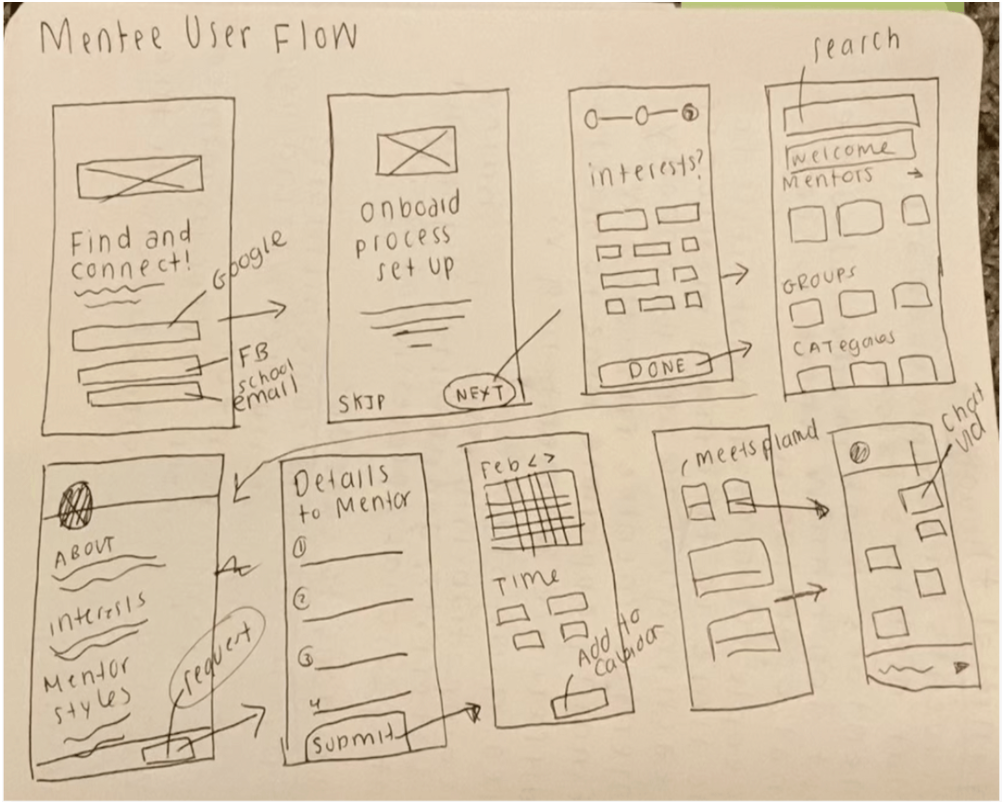 Mentee User Flow
search
Find and
connect!
Google
FB
school
email
onboard
process
set up
SKIP
NEXT
3
interests?
DONE
welcome
Mentors
GROUPS
CATegories
ABOUT
interests
Mentor
styles
request
Details
to Mentor
1
2
3
4
submit
Feb < >
TIME
Add to
calendar
meets planned
chat
vid